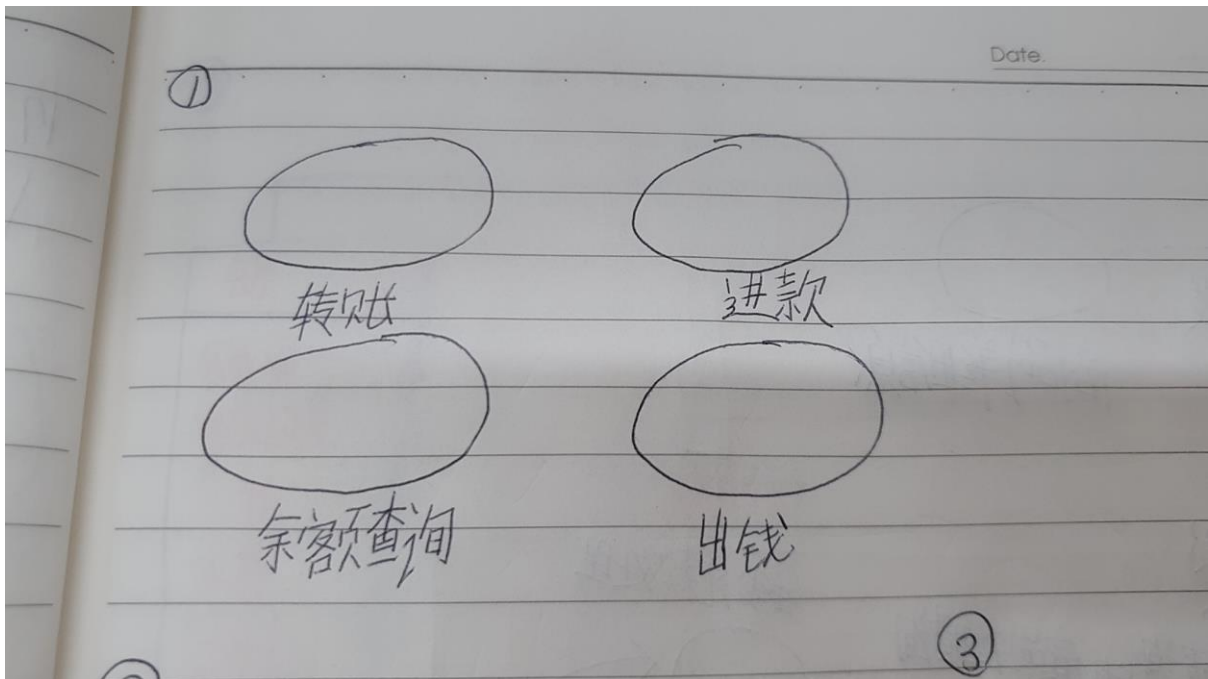 Date.
①
转账 进款
余额查询 出钱
③